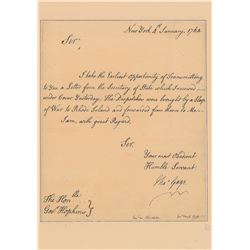 New York 4th January, 1764
Sir,
I take the Earliest opportunity of Transmitting
to You a Letter from the Secretary of State which I received
under Cover Yesterday. The Dispatches were brought by a Sloop
of War to Rhode Island and forwarded from thence to Me.
I am, with great Regard,
Sir,
Your most Obedient
Humble Servant
Thos Gage
The Honble
Govr Hopkins